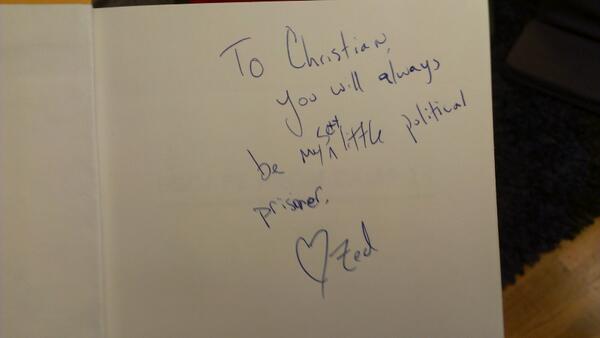 To Christian,
you will always
be my little political
prisoner.
♡ Zed